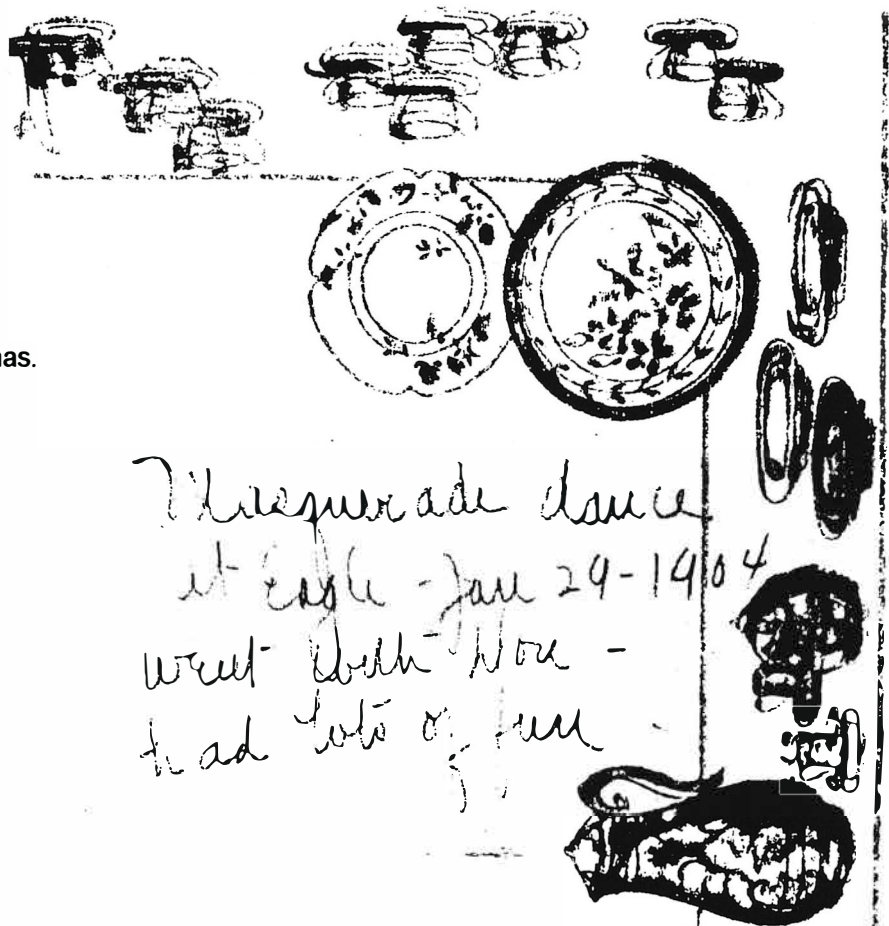 nas.
Masquerade dance
at Eagle - Jan 29 - 1904
went with -
had lots of fun